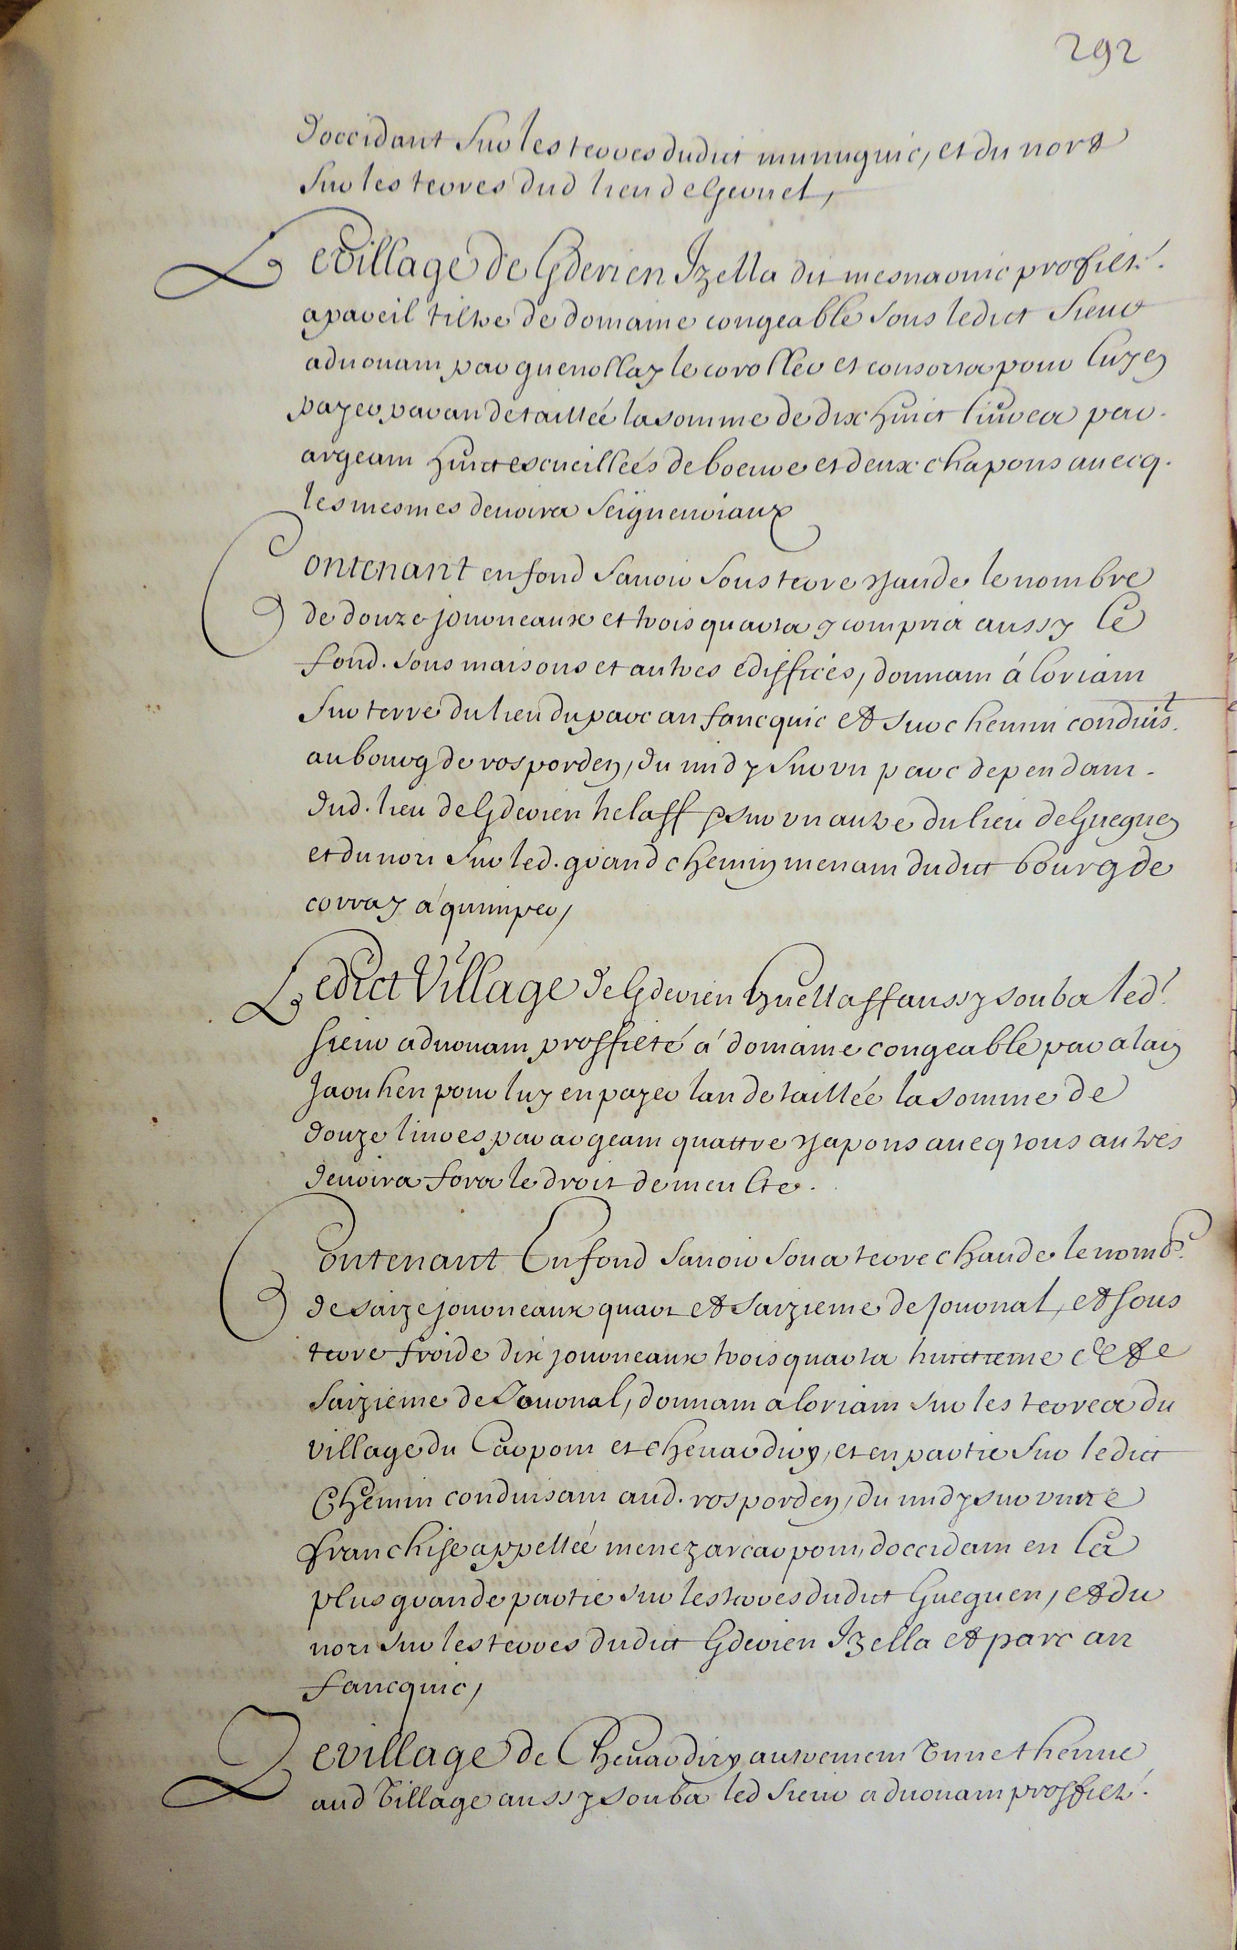 292
d'occidant sur les terres dudict munuguic, et du nord
sur les terres dud lieu de Kervret,
Le village de Kderien Izella dit mesnaouic profité
a pareil tiltre de domaine congeable sous ledict sieur
aduouant par guenollay le coroller et consorts pour luy en
payer par an de taillée la somme de dix huict liures par
argeant huict escueillées de boeure et deux chapons auecq
les mesmes deuoirs seigneuriaux
Contenant en fond sauoir sous terre chaude le nombre
de douze journeaux et trois quarts y compris aussy le
fond sous maisons et autres édiffices, donnant á loriant
sur terre du lieu du parc an fancquic et sur chemin conduist
au bourg de rosporden, du midy sur un parc dependant
dud. lieu de Kderien helaff et sur un autre du lieu de Gueguen
et du nort sur led. grand chemin menant dudict bourg de
corray á quimper,
Ledict Village de Kderien huellaff aussy soubs led.
sieur aduouant proffité á domaine congeable par alain
Jaouhen pour luy en payer lan de taillée la somme de
douze liures par argeant quattre chapons aueq tous autres
deuoirs fors le droit de meulte.
Contenant En fond sauoir soubs terre chaude le nombre
de saize journeaux quart et saizieme de Journal, et sous
terre froide dix journeaux trois quarts huictieme et le
saizieme de Journal, donnant a loriant sur les terres du
village du Carpont et chenardiry, et en partie sur ledict
Chemin conduisant aud. rosporden, du midy sur une
franchise appellée menez ar carpont, doccidant en la
plus grande partie sur les terres dudict Gueguen, et du
nort sur les terres dudict Kderien Izella et parc an
fancquic,
Le village de Chenardiry autrement Tunethenne
aud Village aussy soubs led sieur aduouant proffité